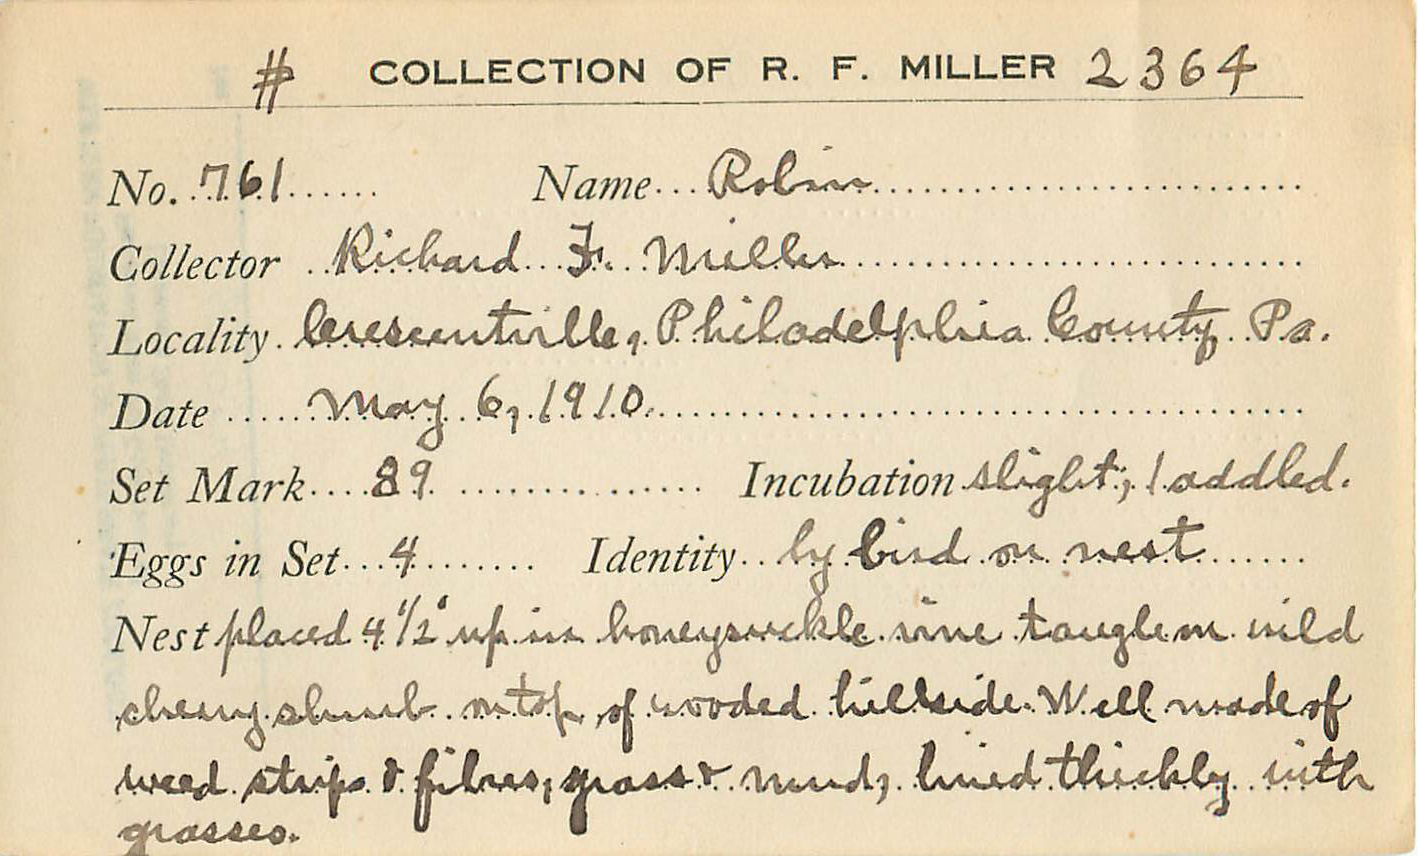 # COLLECTION OF R. F. MILLER 2364
No. 761 Name Robin
Collector Richard F. Miller
Locality Crescentville, Philadelphia County, Pa.
Date May 6, 1910.
Set Mark 89 Incubation slight; 1 addled.
Eggs in Set 4 Identity by bird on nest
Nest placed 4 1/2' up in honeysuckle vine tangle on wild
cherry shrub on top of wooded hillside. Well made of
weed strips & fibres, grass & mud, lined thickly with
grasses.